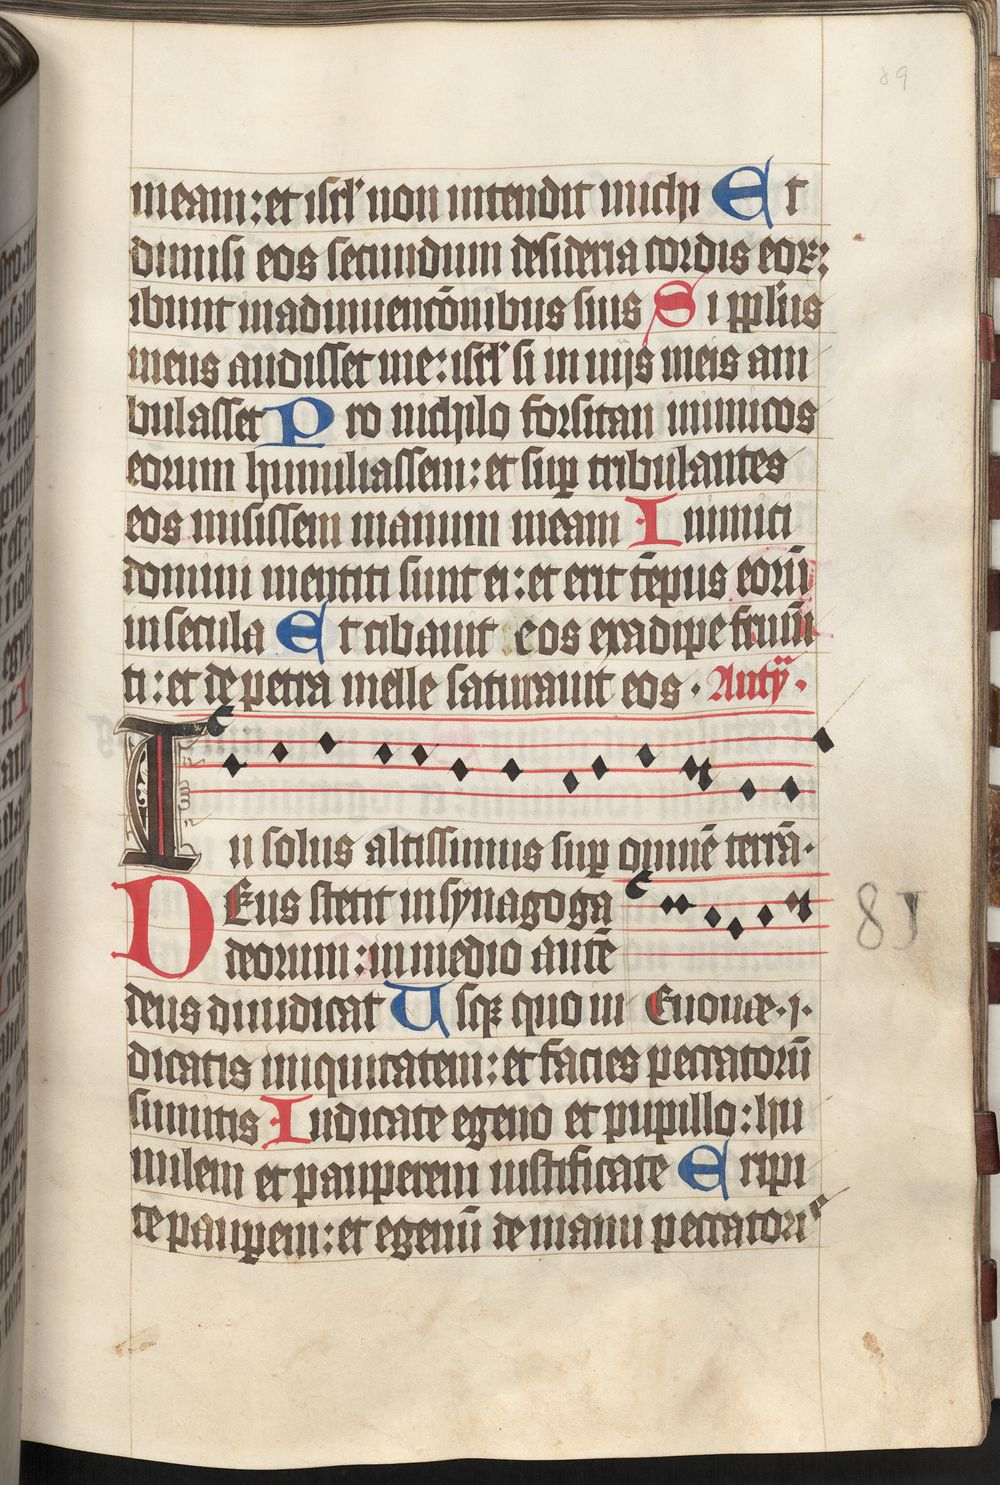 89
meam: et isrl' non intendit michi Et
dimisi eos secundum desideria cordis eor:
ibunt in adinuentōnibus suis Si ppl'us
meus audisset me: isrl' si in uijs meis am
bulasset Pro nichilo forsitan inimicos
eorum humiliassem: et sup tribulantes
eos misissem manum meam Inimici
domini mentiti sunt ei: et erit tēpus eorū
in secula Et cibauit eos ex adipe frumē
ti: et de petra melle saturauit eos. Anty̎.
Tu solus altissimus sup omnē terrā.
DEus stetit in synagoga
deorum: in medio autē
deus diiudicat Usq quo iu Euouae.j.
dicatis iniquitatem: et facies peccatorū
sumitis Iudicate egeno et pupillo: hu
milem et pauperem iustificate Eripi
te paupem: et egenū de manu peccatoris
81